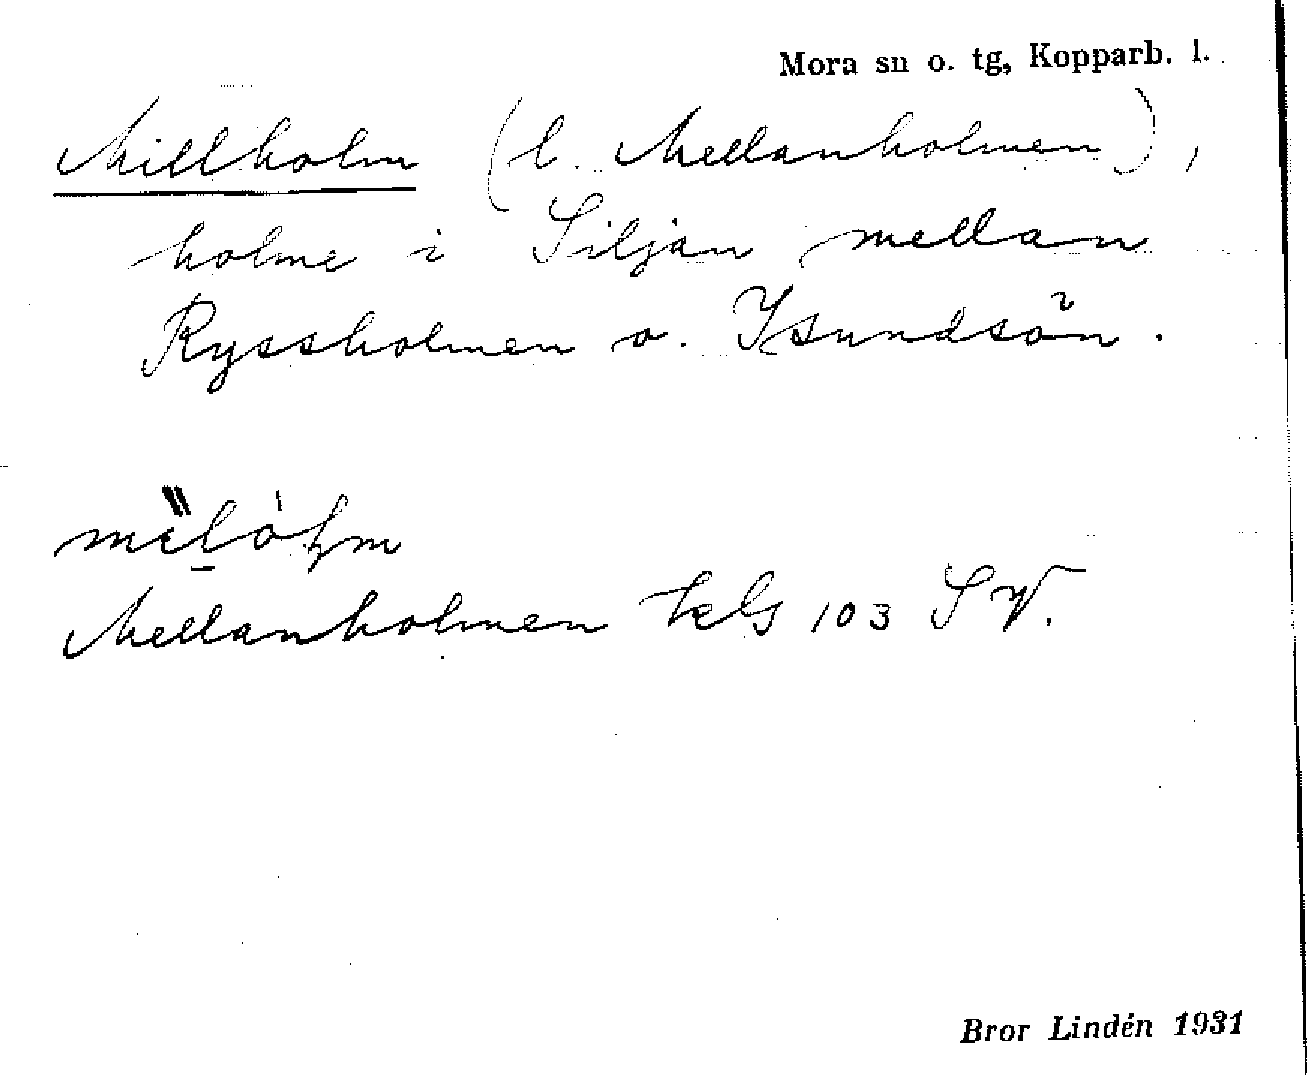 Mora sn o. tg, Kopparb. l.
Millholm (l. Mellanholmen),
holme i Siljan mellan
Ryssholmen o. Isundsön.
Mellanholmen kbs 103 SV.
Bror Lindén 1931